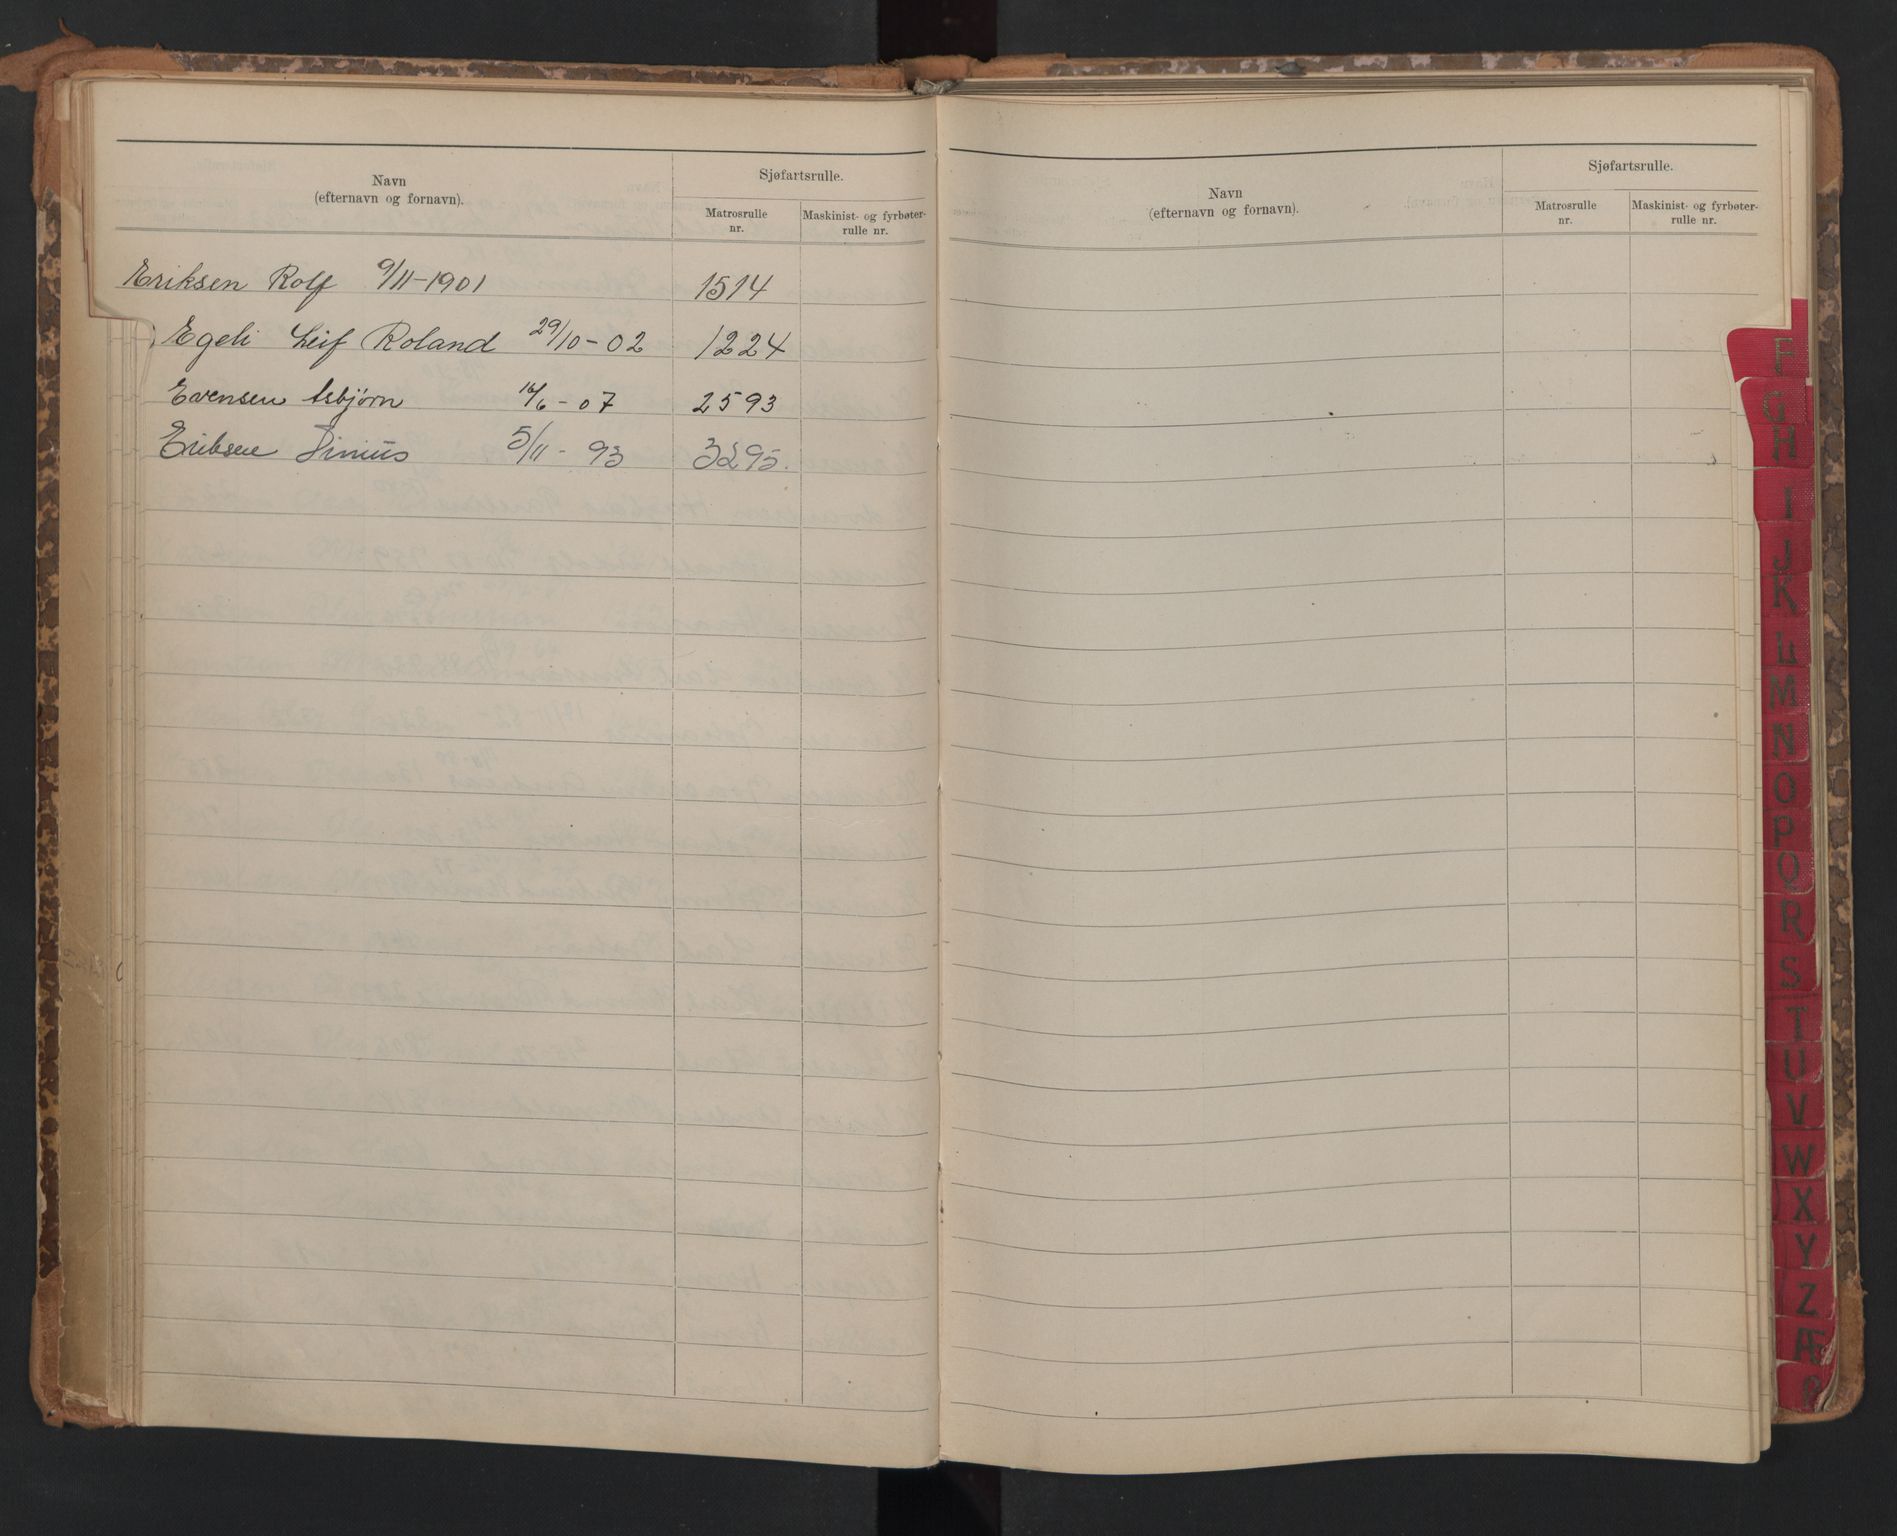 Navn
(efternavn og fornavn).
Sjøfartsrulle.
Matrosrulle
nr.
Maskinist- og fyrbøter-
rulle nr.
Eriksen Rolf 9/11-1901 1514
Egeli Leif Roland 29/10-02 1224
Evensen Asbjørn 16/6-07 2593
Eriksen 5/11-93 3295.
Navn
(efternavn og fornavn).
Sjøfartsrulle.
Matrosrulle
nr.
Maskinist- og fyrbøter-
rulle nr.
F
G
H
I
J
K
L
M
N
O
P
Q
R
S
T
U
V
W
X
Y
Z
Æ